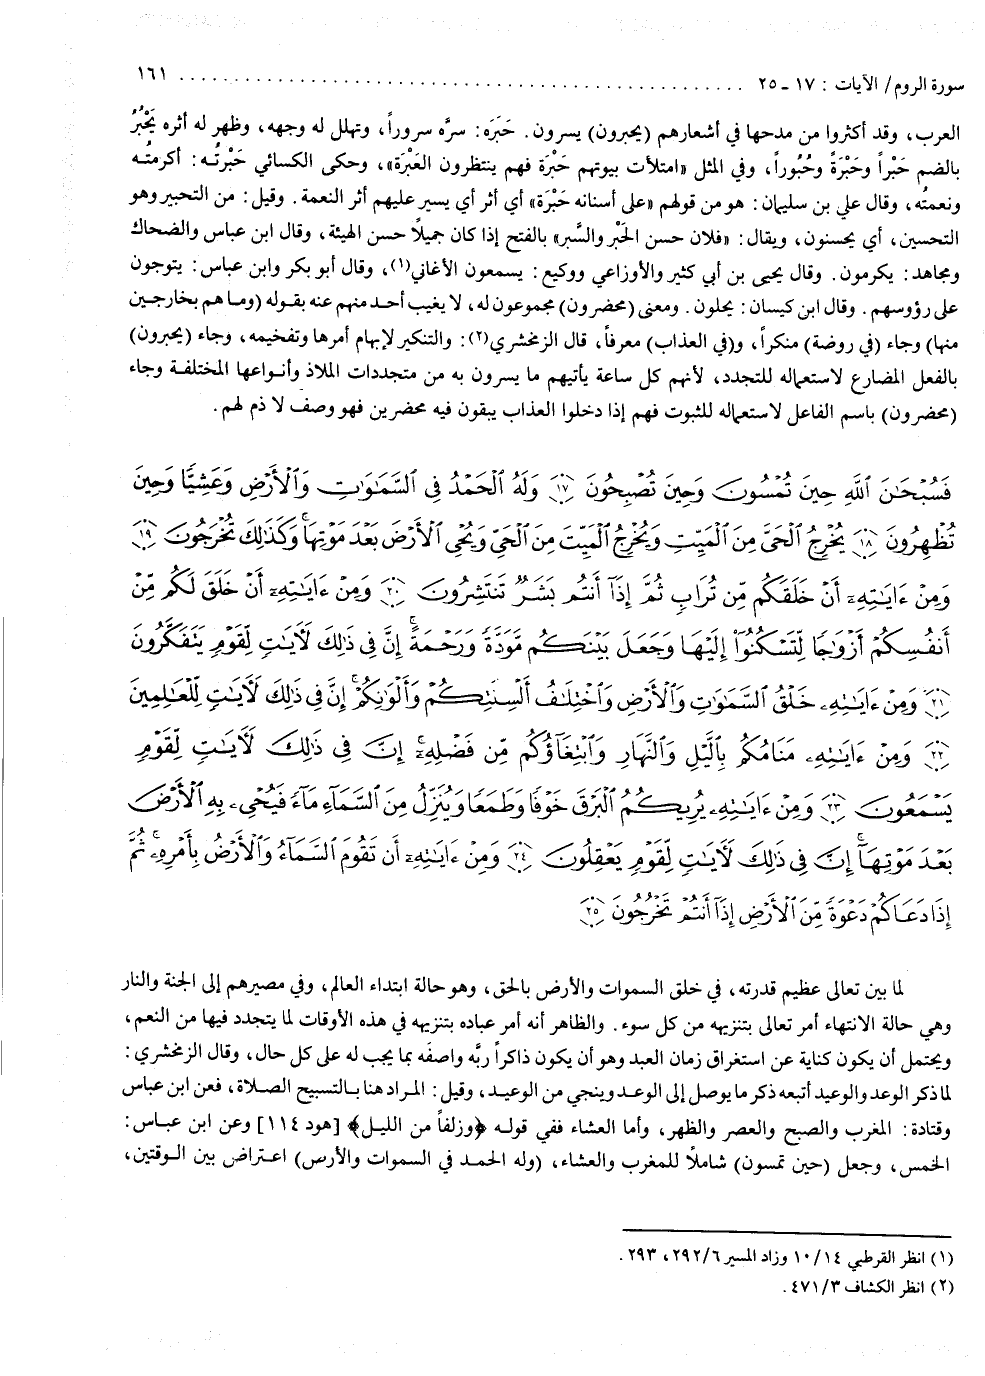 سورة الروم/ الآيات : ١٧ ـ ٢٥ ........................................................ ١٦١
العرب، وقد أكثروا من مدحها في أشعارهم (يحبرون) يسرون. حَبَرَه: سرَّه سروراً، وتهلل له وجهه، وظهر له أثره يَحْبُرُ
بالضم حَبْراً وحَبْرَةً وحُبُوراً، وفي المثل «امتلأت بيوتهم حَبْرَة فهم ينتظرون العَبْرَة»، وحكى الكسائي حَبْرتُه: أكرمتُه
ونعمتُه، وقال علي بن سليمان: هو من قولهم «على أسنانه حَبْرَة» أي أثر أي يسير عليهم أثر النعمة. وقيل: من التحبير وهو
التحسين، أي يحسنون، ويقال: «فلان حسن الحَبْر والسَّبر» بالفتح إذا كان جميلاً حسن الهيئة، وقال ابن عباس والضحاك
ومجاهد: يكرمون. وقال يحيى بن أبي كثير والأوزاعي ووكيع: يسمعون الأغاني(١)، وقال أبو بكر وابن عباس: يتوجون
على رؤوسهم. وقال ابن كيسان: يحلون. ومعنى (محضرون) مجموعون له، لا يغيب أحد منهم عنه بقوله (وما هم بخارجين
منها) وجاء (في روضة) منكراً، و(في العذاب) معرفاً، قال الزمخشري(٢): والتنكير لإبهام أمرها وتفخيمه، وجاء (يحبرون)
بالفعل المضارع لاستعماله للتجدد، لأنهم كل ساعة يأتيهم ما يسرون به من متجددات الملاذ وأنواعها المختلفة وجاء
(محضرون) باسم الفاعل لاستعماله للثبوت فهم إذا دخلوا العذاب يبقون فيه محضرين فهو وصف لا ذم لهم.
فَسُبْحَٰنَ ٱللَّهِ حِينَ تُمْسُونَ وَحِينَ تُصْبِحُونَ ١٧ وَلَهُ ٱلْحَمْدُ فِى ٱلسَّمَٰوَٰتِ وَٱلْأَرْضِ وَعَشِيًّا وَحِينَ
تُظْهِرُونَ ١٨ يُخْرِجُ ٱلْحَىَّ مِنَ ٱلْمَيِّتِ وَيُخْرِجُ ٱلْمَيِّتَ مِنَ ٱلْحَىِّ وَيُحْىِ ٱلْأَرْضَ بَعْدَ مَوْتِهَا ۚ وَكَذَٰلِكَ تُخْرَجُونَ ١٩
وَمِنْ ءَايَٰتِهِۦٓ أَنْ خَلَقَكُم مِّن تُرَابٍ ثُمَّ إِذَآ أَنتُم بَشَرٌ تَنتَشِرُونَ ٢٠ وَمِنْ ءَايَٰتِهِۦٓ أَنْ خَلَقَ لَكُم مِّنْ
أَنفُسِكُمْ أَزْوَٰجًا لِّتَسْكُنُوٓا۟ إِلَيْهَا وَجَعَلَ بَيْنَكُم مَّوَدَّةً وَرَحْمَةً ۚ إِنَّ فِى ذَٰلِكَ لَءَايَٰتٍ لِّقَوْمٍ يَتَفَكَّرُونَ
٢١ وَمِنْ ءَايَٰتِهِۦ خَلْقُ ٱلسَّمَٰوَٰتِ وَٱلْأَرْضِ وَٱخْتِلَٰفُ أَلْسِنَتِكُمْ وَأَلْوَٰنِكُمْ ۚ إِنَّ فِى ذَٰلِكَ لَءَايَٰتٍ لِّلْعَٰلِمِينَ
٢٢ وَمِنْ ءَايَٰتِهِۦ مَنَامُكُم بِٱلَّيْلِ وَٱلنَّهَارِ وَٱبْتِغَآؤُكُم مِّن فَضْلِهِۦٓ ۚ إِنَّ فِى ذَٰلِكَ لَءَايَٰتٍ لِّقَوْمٍ
يَسْمَعُونَ ٢٣ وَمِنْ ءَايَٰتِهِۦ يُرِيكُمُ ٱلْبَرْقَ خَوْفًا وَطَمَعًا وَيُنَزِّلُ مِنَ ٱلسَّمَآءِ مَآءً فَيُحْىِۦ بِهِ ٱلْأَرْضَ
بَعْدَ مَوْتِهَآ ۚ إِنَّ فِى ذَٰلِكَ لَءَايَٰتٍ لِّقَوْمٍ يَعْقِلُونَ ٢٤ وَمِنْ ءَايَٰتِهِۦٓ أَن تَقُومَ ٱلسَّمَآءُ وَٱلْأَرْضُ بِأَمْرِهِۦ ۚ ثُمَّ
إِذَا دَعَاكُمْ دَعْوَةً مِّنَ ٱلْأَرْضِ إِذَآ أَنتُمْ تَخْرُجُونَ ٢٥
لما بين تعالى عظيم قدرته، في خلق السموات والأرض بالحق، وهو حالة ابتداء العالم، وفي مصيرهم إلى الجنة والنار
وهي حالة الانتهاء أمر تعالى بتنزيهه من كل سوء. والظاهر أنه أمر عباده بتنزيهه في هذه الأوقات لما يتجدد فيها من النعم،
ويحتمل أن يكون كناية عن استغراق زمان العبد وهو أن يكون ذاكراً ربَّه واصفَه بما يجب له على كل حال، وقال الزمخشري:
لما ذكر الوعد والوعيد أتبعه ذكر ما يوصل إلى الوعد وينجي من الوعيد، وقيل: المراد هنا بالتسبيح الصلاة، فعن ابن عباس
وقتادة: المغرب والصبح والعصر والظهر، وأما العشاء ففي قوله ﴿وزلفاً من الليل﴾ [هود ١١٤] وعن ابن عباس:
الخمس، وجعل (حين تمسون) شاملاً للمغرب والعشاء، (وله الحمد في السموات والأرض) اعتراض بين الوقتين،
(١) انظر القرطبي ١٠/١٤ وزاد المسير ٢٩٢/٦، ٢٩٣.
(٢) انظر الكشاف ٤٧١/٣.